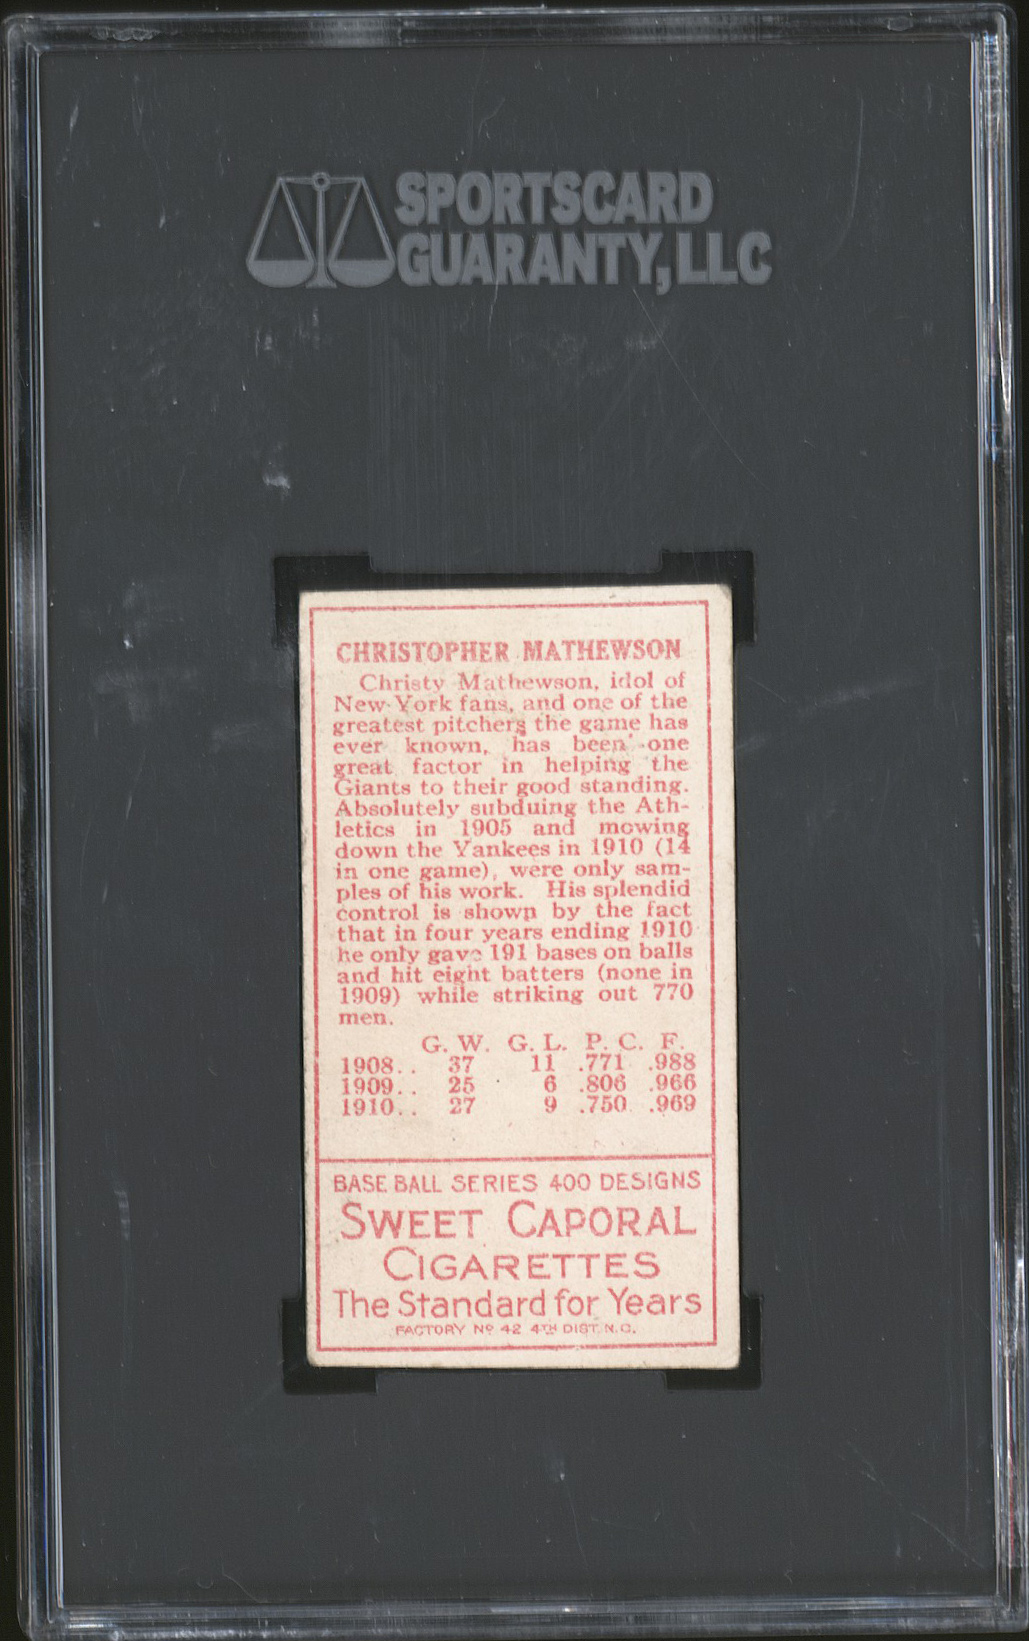 SPORTSCARD
GUARANTY, LLC
CHRISTOPHER MATHEWSON
Christy Mathewson, idol of
New York fans, and one of the
greatest pitchers the game has
ever known, has been one
great factor in helping the
Giants to their good standing.
Absolutely subduing the Ath-
letics in 1905 and mowing
down the Yankees in 1910 (14
in one game), were only sam-
ples of his work. His splendid
control is shown by the fact
that in four years ending 1910
he only gave 191 bases on balls
and hit eight batters (none in
1909) while striking out 770
men.
G. W. G. L. P. C. F.
1908.. 37 11 .771 .988
1909.. 25 6 .806 .966
1910.. 27 9 .750 .969
BASE BALL SERIES 400 DESIGNS
SWEET CAPORAL
CIGARETTES
The Standard for Years
FACTORY Nº 42 4TH DIST. N.C.